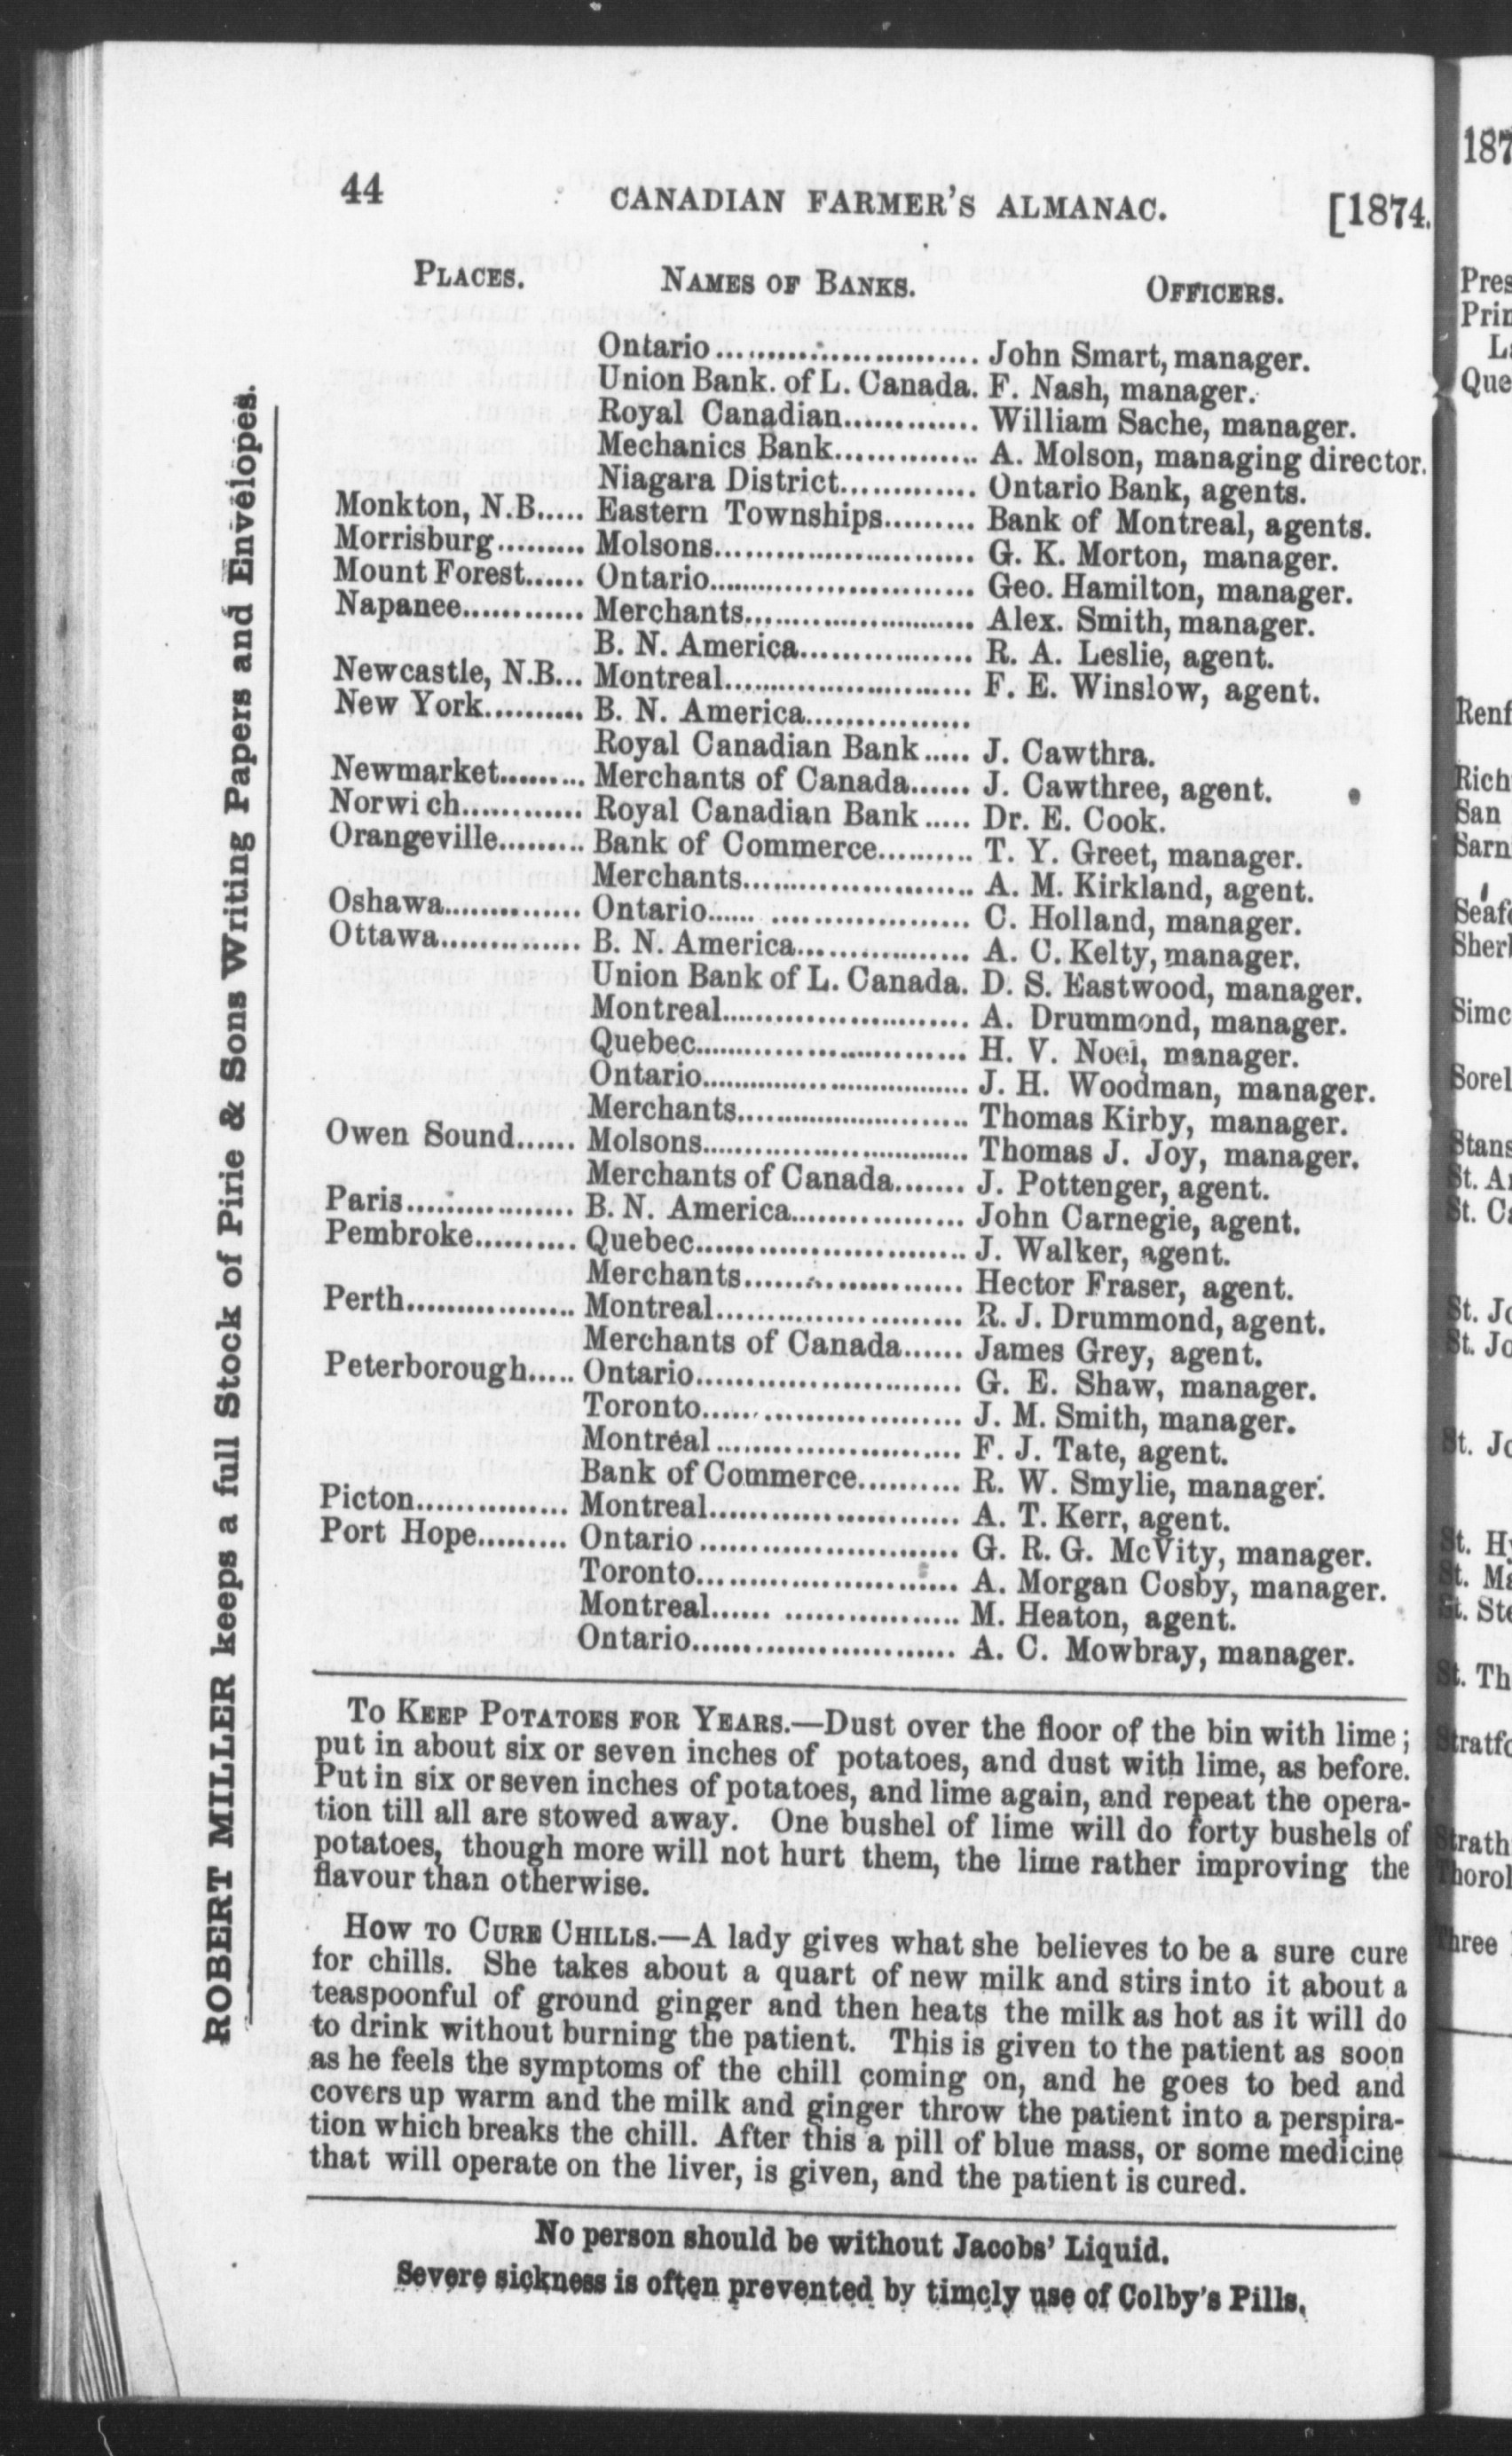 44 CANADIAN FARMER'S ALMANAC. [1874.
PLACES. NAMES OF BANKS. OFFICERS.
Ontario........................... John Smart, manager.
Union Bank. of L. Canada. F. Nash, manager.
Royal Canadian............. William Sache, manager.
Mechanics Bank.............. A. Molson, managing director.
Niagara District............. Ontario Bank, agents.
Monkton, N.B..... Eastern Townships......... Bank of Montreal, agents.
Morrisburg......... Molsons........................... G. K. Morton, manager.
Mount Forest...... Ontario........................... Geo. Hamilton, manager.
Napanee............ Merchants........................ Alex. Smith, manager.
B. N. America................. R. A. Leslie, agent.
Newcastle, N.B... Montreal.......................... F. E. Winslow, agent.
New York.......... B. N. America.................
Royal Canadian Bank..... J. Cawthra.
Newmarket......... Merchants of Canada...... J. Cawthree, agent.
Norwi ch............ Royal Canadian Bank..... Dr. E. Cook.
Orangeville......... Bank of Commerce.......... T. Y. Greet, manager.
Merchants........................ A. M. Kirkland, agent.
Oshawa.............. Ontario...... .................... C. Holland, manager.
Ottawa.............. B. N. America................. A. C. Kelty, manager.
Union Bank of L. Canada. D. S. Eastwood, manager.
Montreal.......................... A. Drummond, manager.
Quebec............................ H. V. Noel, manager.
Ontario............................ J. H. Woodman, manager.
Merchants........................ Thomas Kirby, manager.
Owen Sound...... Molsons........................... Thomas J. Joy, manager.
Merchants of Canada....... J. Pottenger, agent.
Paris................. B. N. America................. John Carnegie, agent.
Pembroke.......... Quebec............................ J. Walker, agent.
Merchants....................... Hector Fraser, agent.
Perth................. Montreal......................... R. J. Drummond, agent.
Merchants of Canada...... James Grey, agent.
Peterborough..... Ontario........................... G. E. Shaw, manager.
Toronto.......................... J. M. Smith, manager.
Montreal......................... F. J. Tate, agent.
Bank of Commerce.......... R. W. Smylie, manager.
Picton............... Montreal.......................... A. T. Kerr, agent.
Port Hope......... Ontario........................... G. R. G. McVity, manager.
Toronto........................... A. Morgan Cosby, manager.
Montreal...... .................. M. Heaton, agent.
Ontario........................... A. C. Mowbray, manager.
TO KEEP POTATOES FOR YEARS.—Dust over the floor of the bin with lime;
put in about six or seven inches of potatoes, and dust with lime, as before.
Put in six or seven inches of potatoes, and lime again, and repeat the opera-
tion till all are stowed away. One bushel of lime will do forty bushels of
potatoes, though more will not hurt them, the lime rather improving the
flavour than otherwise.
HOW TO CURE CHILLS.—A lady gives what she believes to be a sure cure
for chills. She takes about a quart of new milk and stirs into it about a
teaspoonful of ground ginger and then heats the milk as hot as it will do
to drink without burning the patient. This is given to the patient as soon
as he feels the symptoms of the chill coming on, and he goes to bed and
covers up warm and the milk and ginger throw the patient into a perspira-
tion which breaks the chill. After this a pill of blue mass, or some medicine
that will operate on the liver, is given, and the patient is cured.
No person should be without Jacobs' Liquid.
Severe sickness is often prevented by timely use of Colby's Pills.
ROBERT MILLER keeps a full Stock of Pirie & Sons Writing Papers and Envelopes.